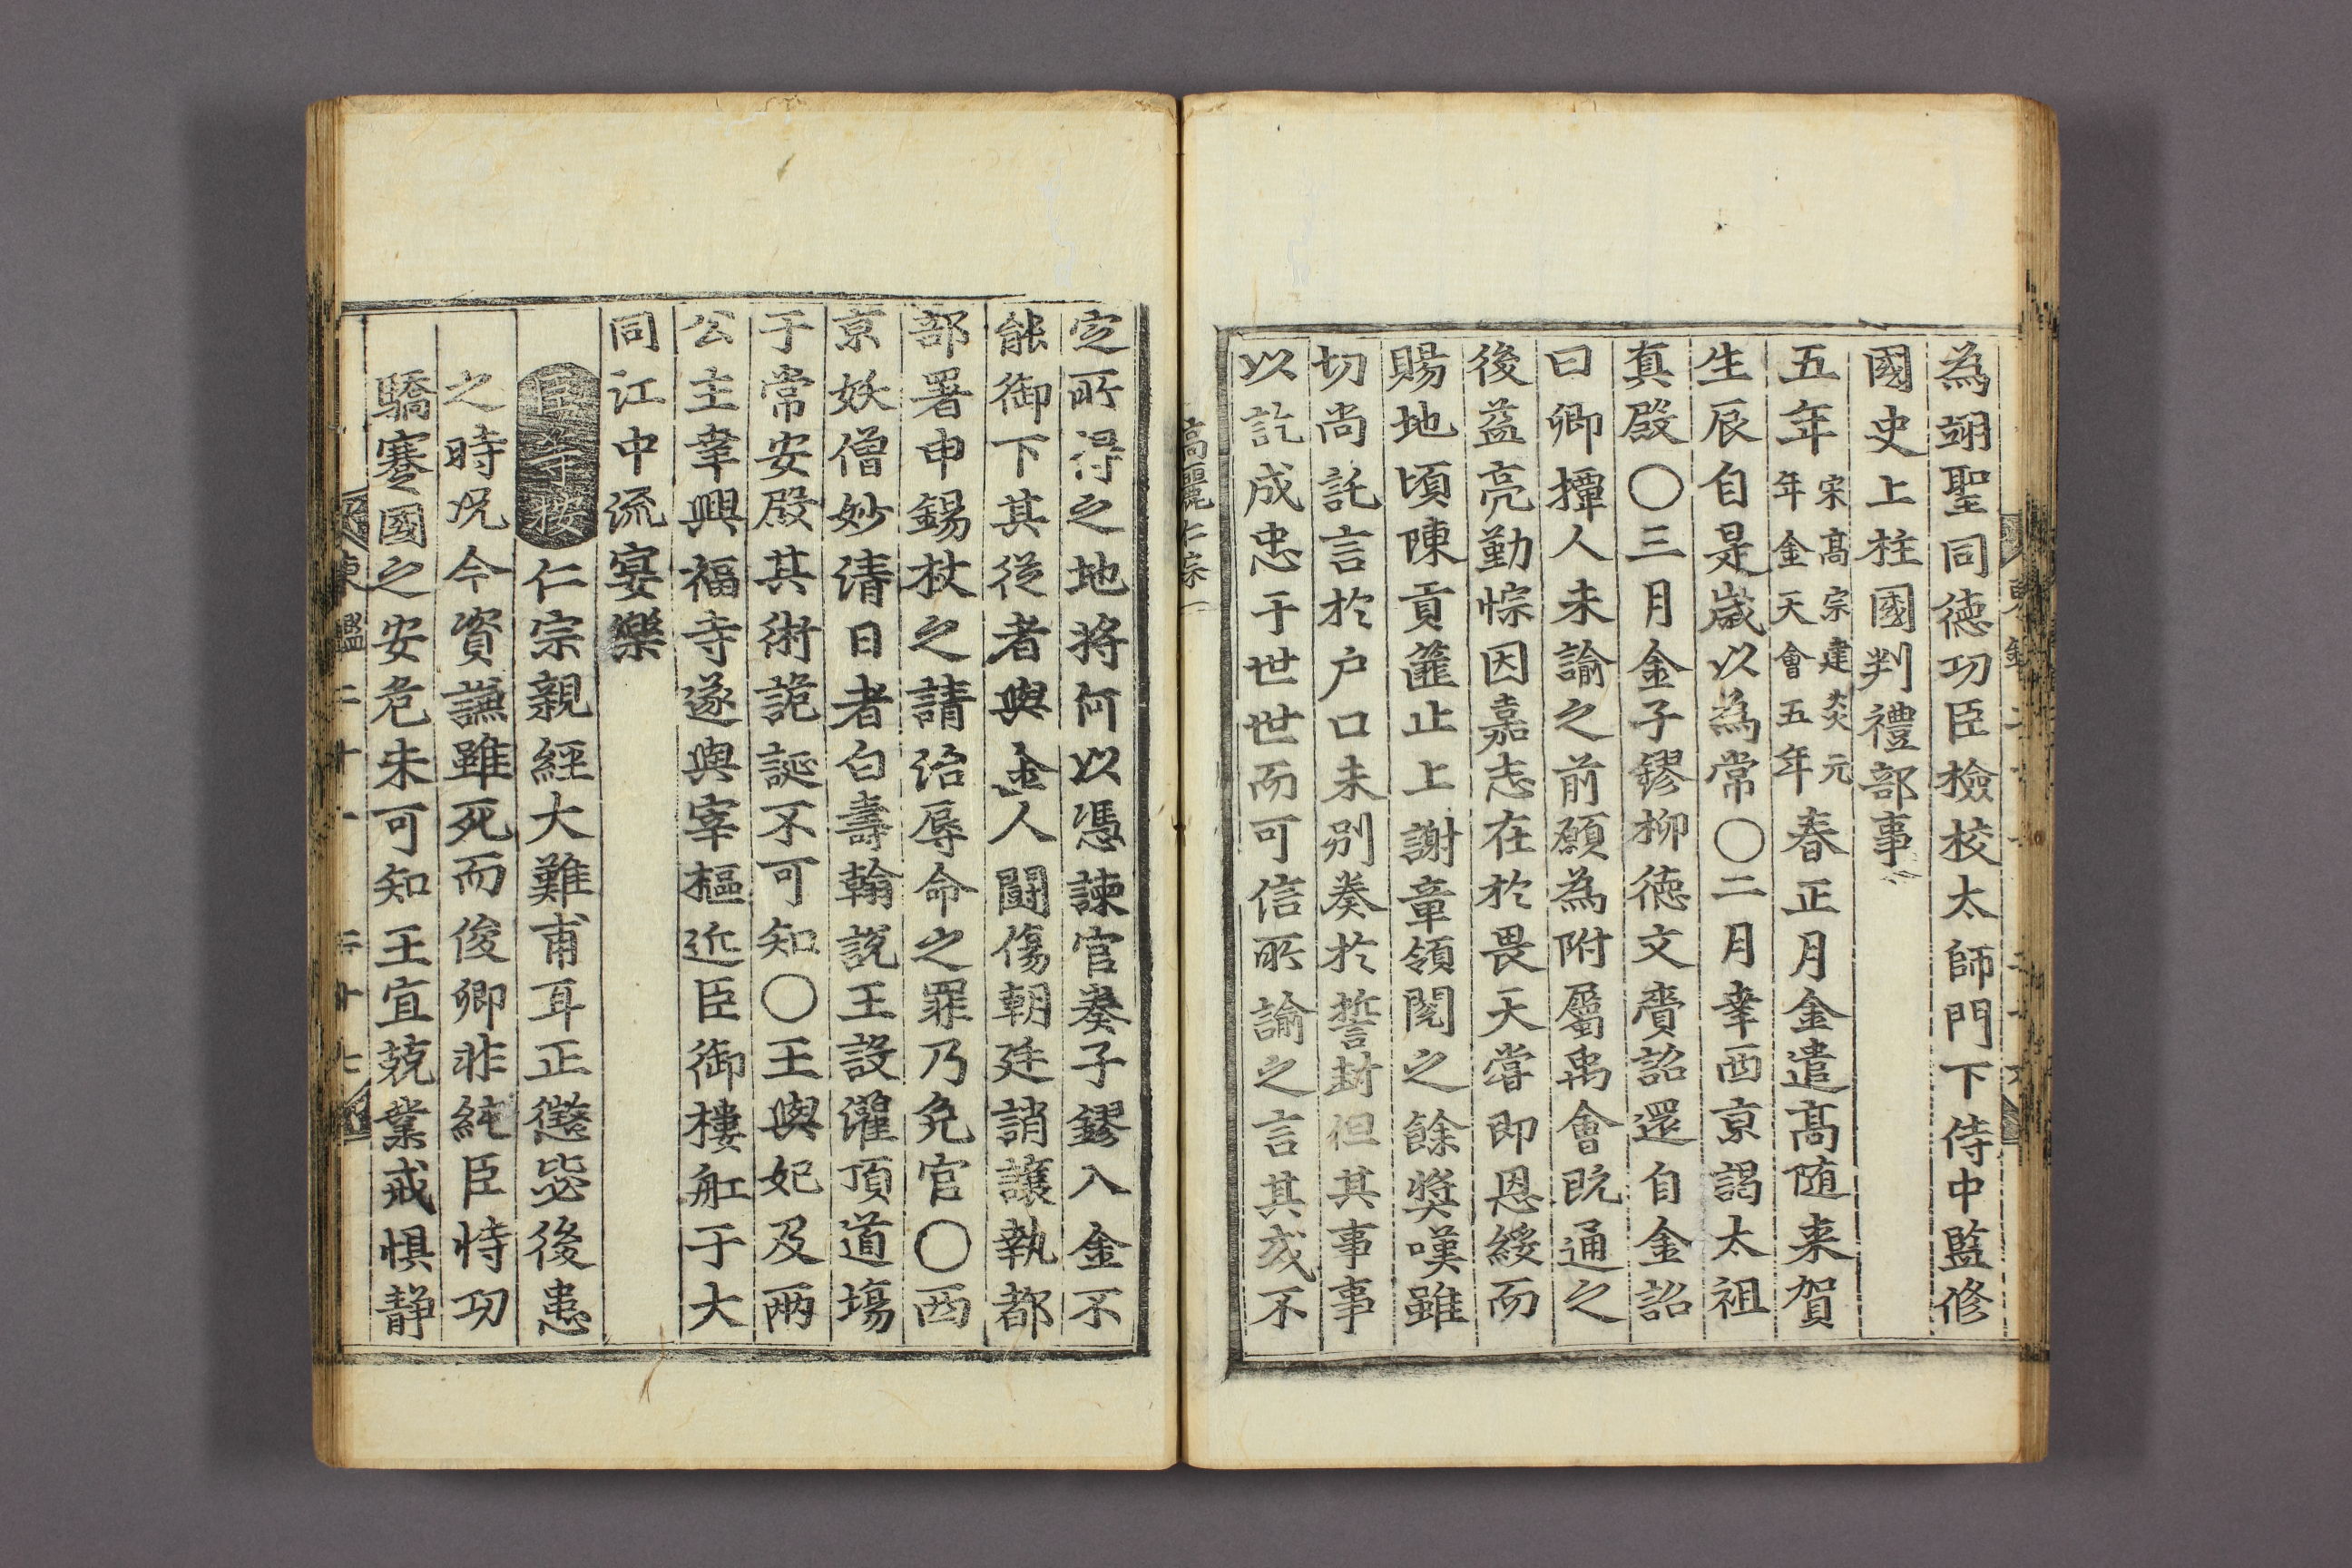 為翊聖同德功臣檢校太師門下侍中監修
國史上柱國判禮部事
五年宋高宗建炎元年金天會五年春正月金遣高随来賀
生辰自是歲以為常〇二月幸西京謁太祖
真殿〇三月金子鏐柳德文賫詔還自金詔
曰卿撢人未諭之前願為附屬禹會既通之
後益亮勤悰因嘉志在於畏天嘗即恩綏而
賜地頃陳貢篚止上謝章領閱之餘獎嘆雖
切尚託言於户口未別奏於誓封但其事事
以訖成忠于世世而可信所諭之言其或不
高麗仁宗一
定所得之地将何以憑諫官奏子鏐入金不
能御下其從者與金人鬪傷朝廷誚讓執都
部署申錫杖之請治辱命之罪乃免官〇西
京妖僧妙清日者白壽翰說王設灌頂道場
于常安殿其術詭誕不可知〇王與妃及兩
公主幸興福寺遂與宰樞近臣御樓舡于大
同江中流宴樂
臣等按仁宗親經大難甫耳正懲毖後患
之時况今資謙雖死而俊卿非純臣恃功
驕蹇國之安危未可知王宜兢業戒惧静